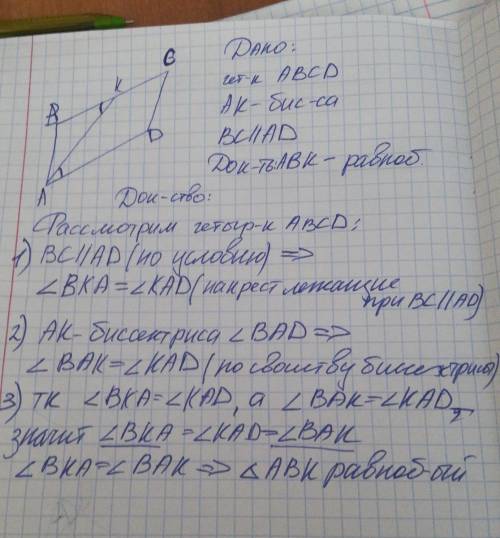 C
K
B
D
A
Дано:
чет-к ABCD
AK - бис-са
BC||AD
Док-ть: ABK - равноб.
Док-ство:
Рассмотрим четыр-к ABCD:
1) BC||AD (по условию) =>
∠BKA = ∠KAD (накрест лежащие
при BC||AD)
2) AK - биссектриса ∠BAD =>
∠BAK = ∠KAD (по свойству биссектрисы)
3) тк ∠BKA = ∠KAD, а ∠BAK = ∠KAD,
значит ∠BKA = ∠KAD = ∠BAK
∠BKA = ∠BAK => △ABK равноб-ый